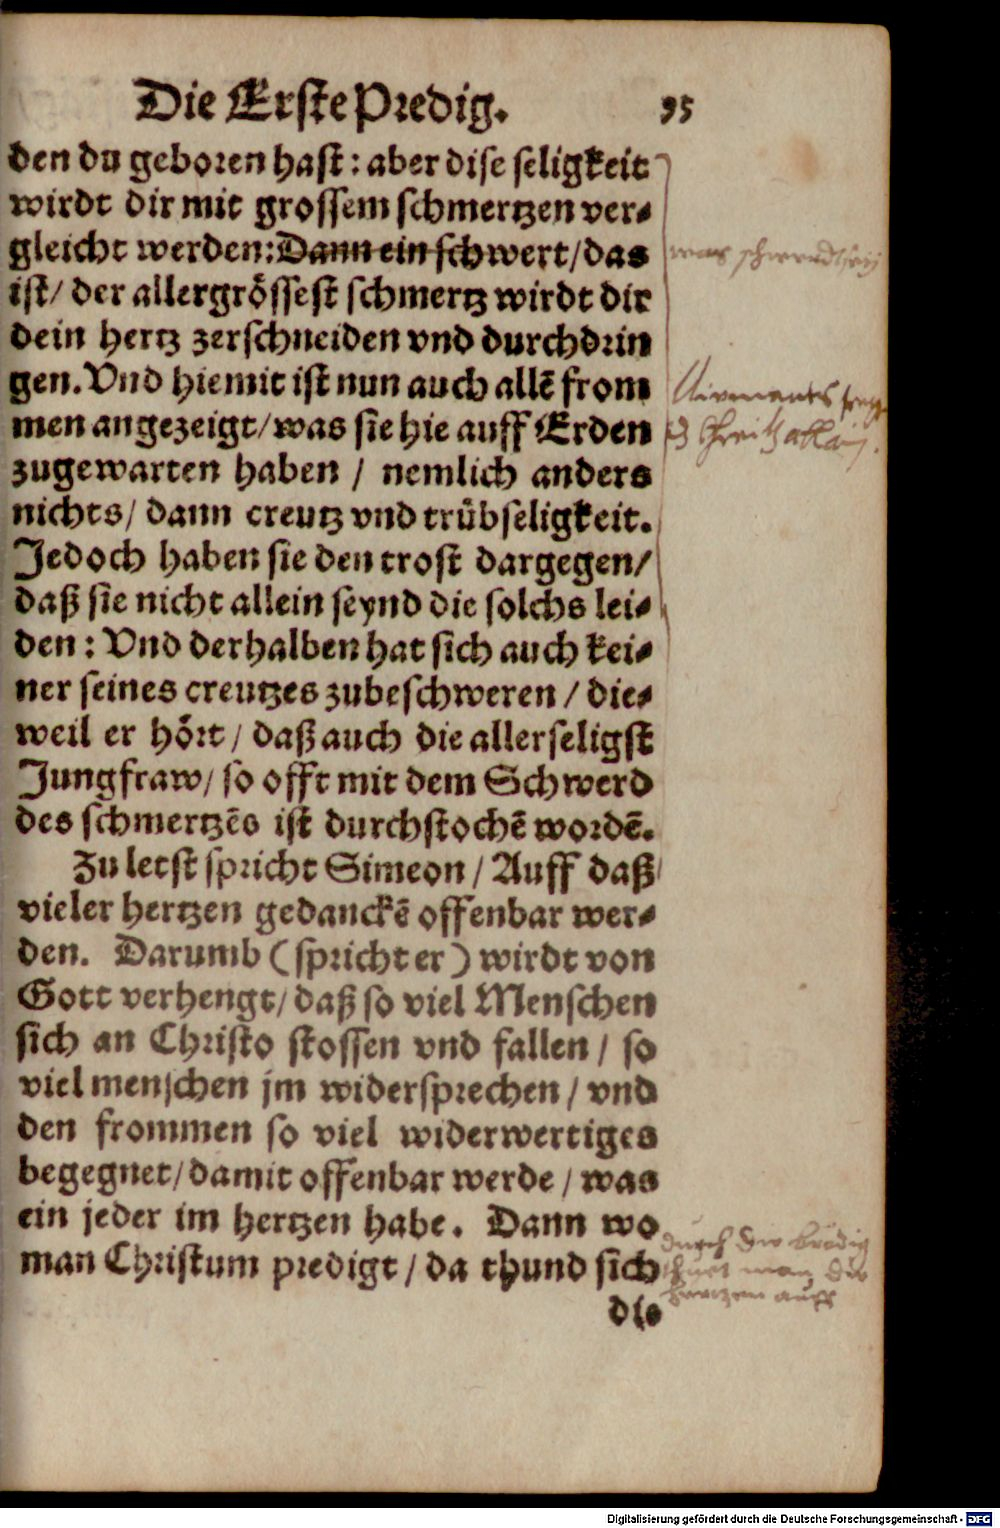 Die Erste Predig. 35
den du geboren hast: aber dise seligkeit
wirdt dir mit grossem schmertzen ver-
gleicht werden: Dann ein schwert/ das
ist/ der allergrössest schmertz wirdt dir
dein hertz zerschneiden vnd durchdrin
gen. Vnd hiemit ist nun auch allē from
men angezeigt/ was sie hie auff Erden
zugewarten haben / nemlich anders
nichts/ dann creutz vnd trübseligkeit.
Jedoch haben sie den trost dargegen/
daß sie nicht allein seynd die solchs lei-
den: Vnd derhalben hat sich auch kei-
ner seines creutzes zubeschweren / die-
weil er hört/ daß auch die allerseligst
Jungfraw/ so offt mit dem Schwerd
des schmertzēs ist durchstochē wordē.
Zu letst spricht Simeon / Auff daß
vieler hertzen gedanckē offenbar wer-
den. Darumb (spricht er) wirdt von
Gott verhengt/ daß so viel Menschen
sich an Christo stossen vnd fallen / so
viel menschen jm widersprechen / vnd
den frommen so viel widerwertiges
begegnet/ damit offenbar werde / was
ein jeder im hertzen habe. Dann wo
man Christum predigt / da thund sich
die
was
durch die
man die
hertzen auff
Digitalisierung gefördert durch die Deutsche Forschungsgemeinschaft - DFG